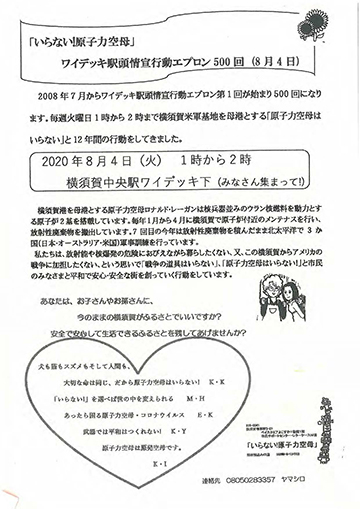 「いらない!原子力空母」
ワイデッキ駅頭情宣行動エプロン500回(8月4日)
2008年7月からワイデッキ駅頭情宣行動エプロン第1回が始まり500回になり
ます。毎週火曜日1時から2時まで横須賀米軍基地を母港とする「原子力空母は
いらない」と12年間の行動をしてきました。
2020年8月4日(火) 1時から2時
横須賀中央駅ワイデッキ下(みなさん集まって!)
横須賀港を母港とする原子力空母ロナルド・レーガンは核兵器並みのウラン核燃料を動力とす
る原子炉2基を搭載しています。毎年1月から4月に横須賀で原子炉付近のメンテナスを行い、
放射性廃棄物を搬出しています。7回目の今年は放射性廃棄物を積んだまま北太平洋で3か
国(日本・オーストラリア・米国)軍事訓練を行っています。
私たちは、放射能や核爆発の危険におびえながら暮らしたくない、又、この横須賀からアメリカの
戦争に加担したくない、という思いで「戦争の道具はいらない」、「原子力空母はいらない!」と市民
のみなさまと平和で安心・安全な街を創っていく行動をしています。
あなたは、お子さんやお孫さんに、
今のままの横須賀がふるさとでいいですか?
安全で安心して生活できるふるさとを残してあげませんか?
犬も猫もスズメもそして人間も、
大切な命は同じ、だから原子力空母はいらない! K・K
「いらない!」を選べば世の中を変えられる M・H
あったら困る原子力空母・コロナウイルス E・K
武器では平和はつくれない! K・Y
原子力空母は原発空母です。
K・I
「いらない!原子力空母」
連絡先 08050283357 ヤマシロ